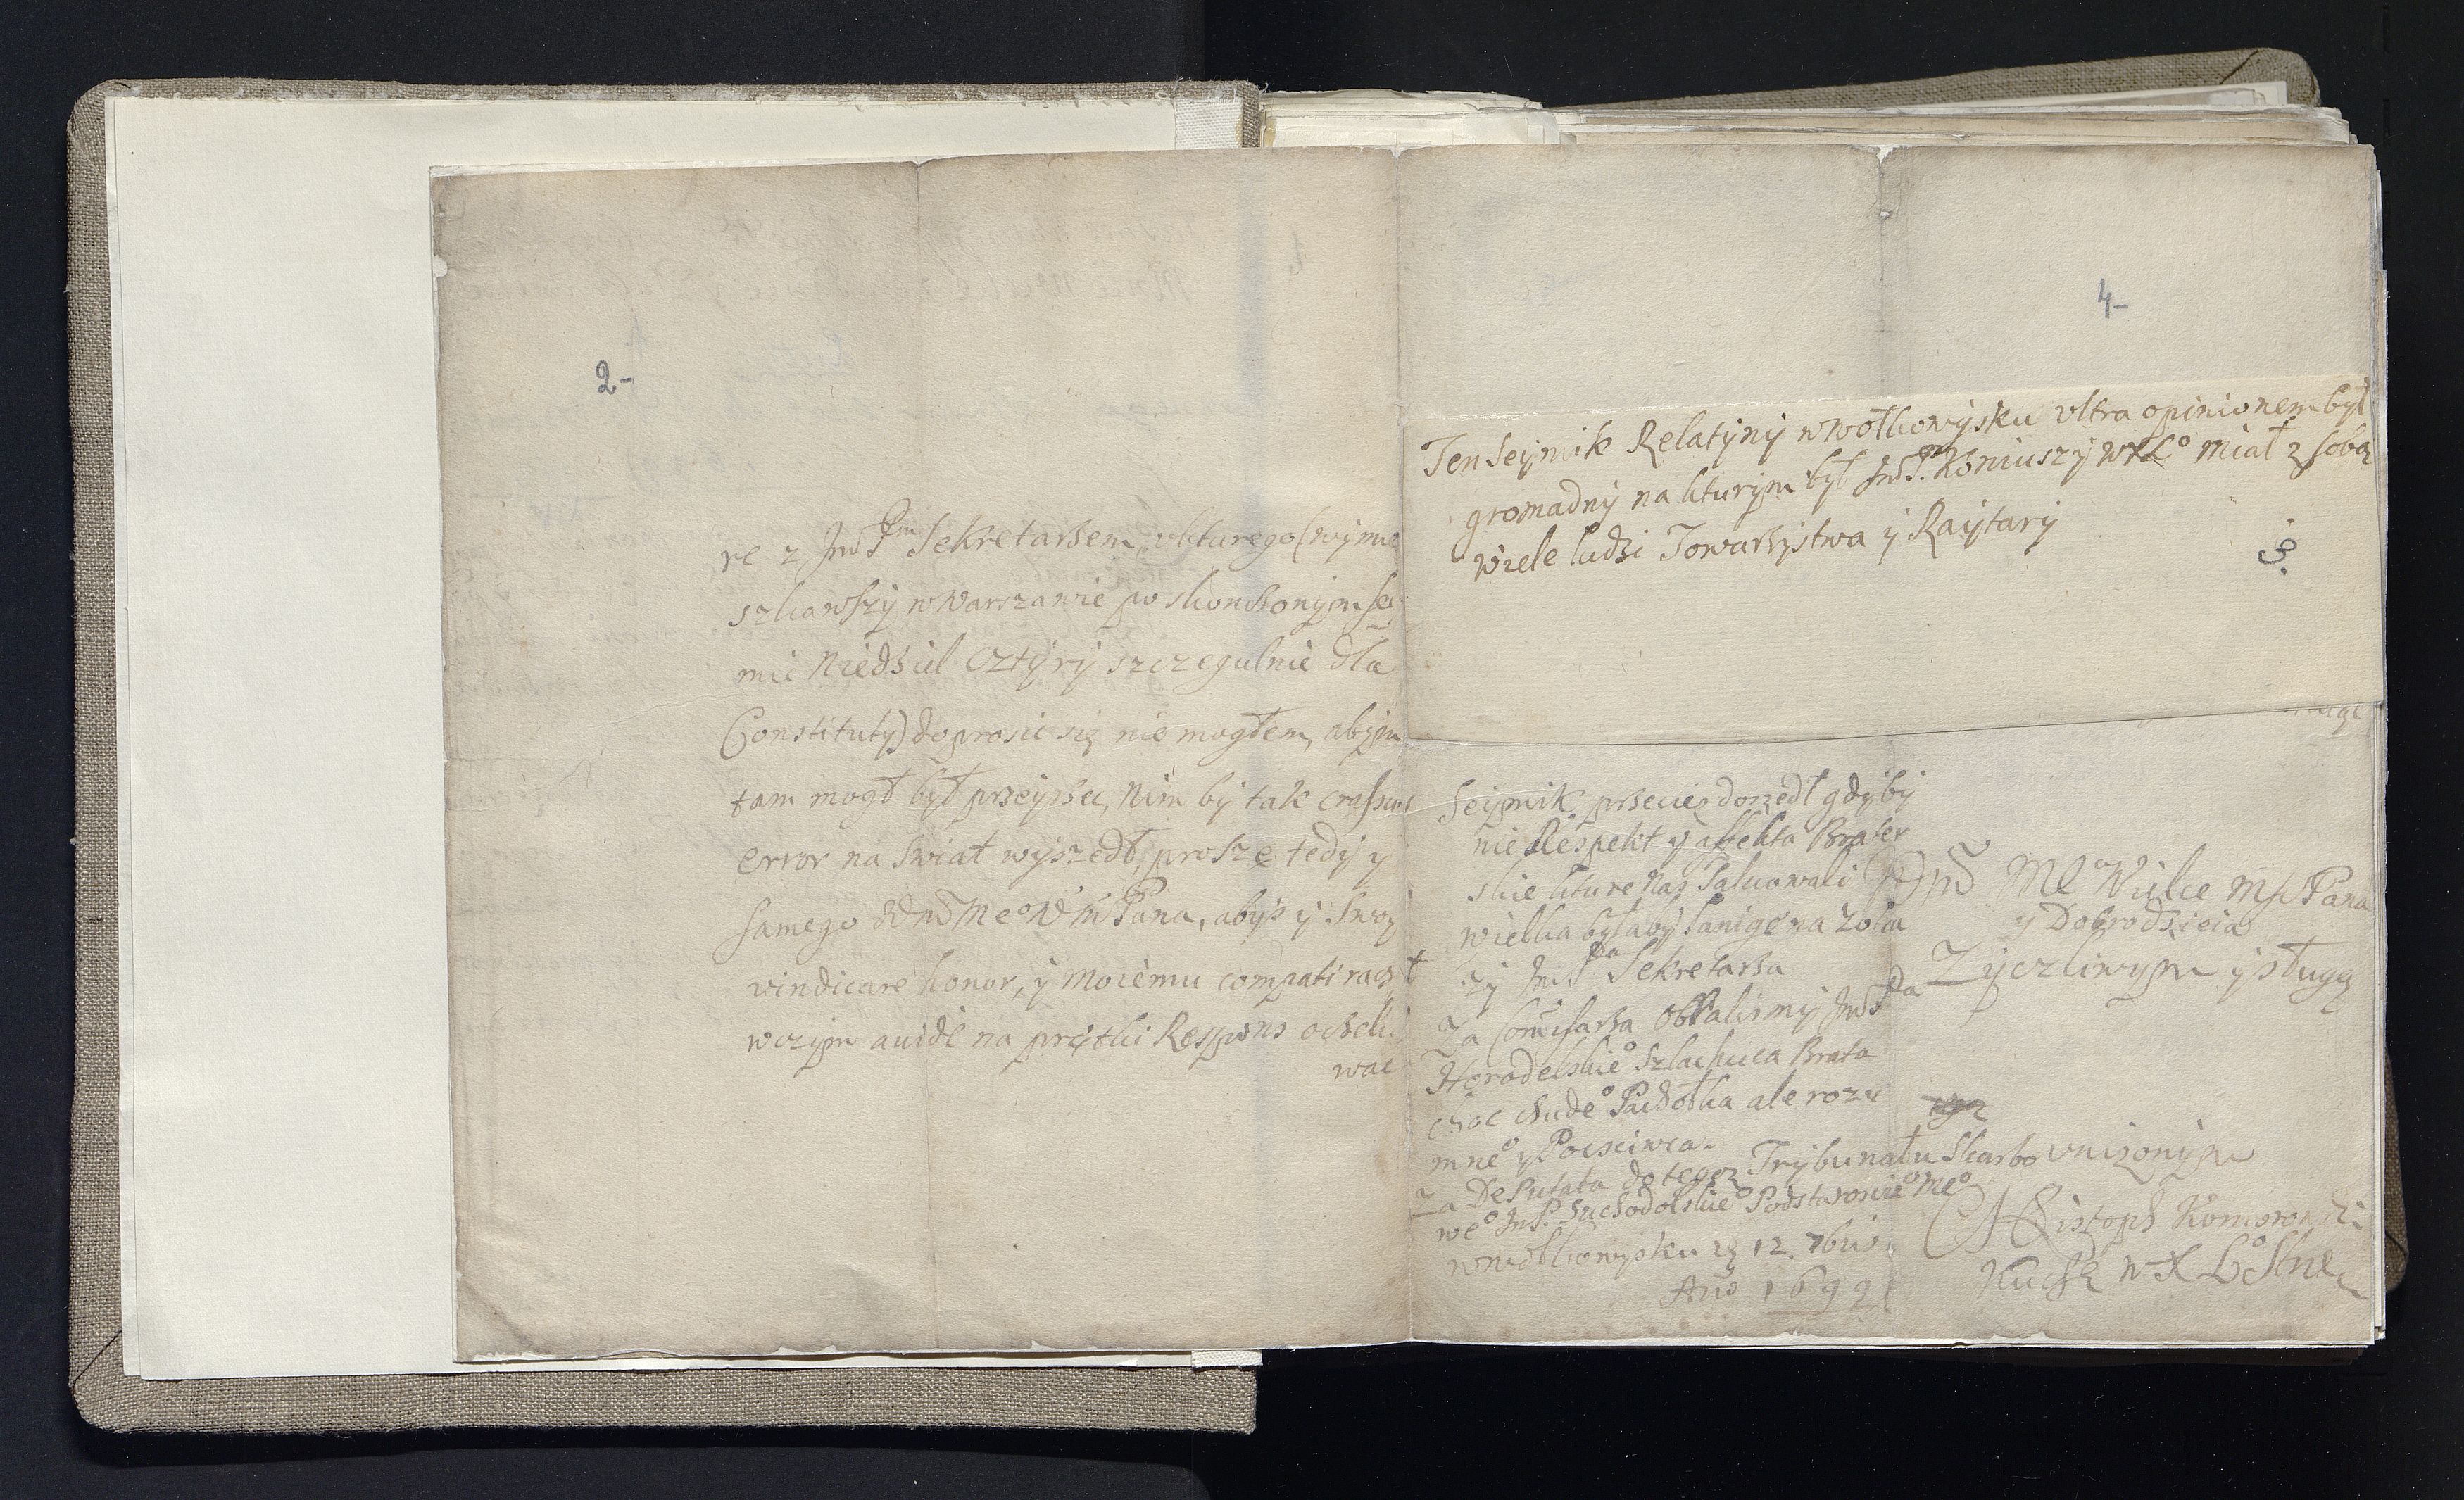 2-
re z JmśPm Sekretarzem, vkturego (wymie
szkawszy w Warszawie po skonczonym Sey
mie Niedziel cztyry szczegulnie dla
Constituty) doprosic się nie mogłem, abym
tam mogł był przeyrzec, nim by tak crassus
error na swiat wyszedł, proszę tedy y
samego WmM Meo W m Pana, abys y swoy
vindicare honor, y moiemu compati raczył
w czym avide na prętki Respons oczeki
wac
4-
Ten Seymik Relatyny w Wołkowysku vltra opinionem był
gromadny na kturym był JmP. Koniuszy WXLo miał z sobą
wiele ludzi Towarzystwa y Raytary
Seymik przecię doszedł gdyby
nie Respekt y affekta Brater
skie kture nas
wielka byłaby na
zy JmśPa Sekretarza
Za Comisarza obralismy JmśPa
Horodelskieo Szlachcica Brata
choc chudeo Pachołka ale rozu
mneo y Poczciwea.
Za Deputata do tegoz Trybunału Skarbo
weo JmP. Suchodolskieo Podstaroscieo Meo
w Wołkowysku 12. 7bris
Ano 1699
Meo Wielce Mm Pana
y Dobrodzieia
Zyczliwym y sługą
vnizonym
Christoph Komorowski
WXLo